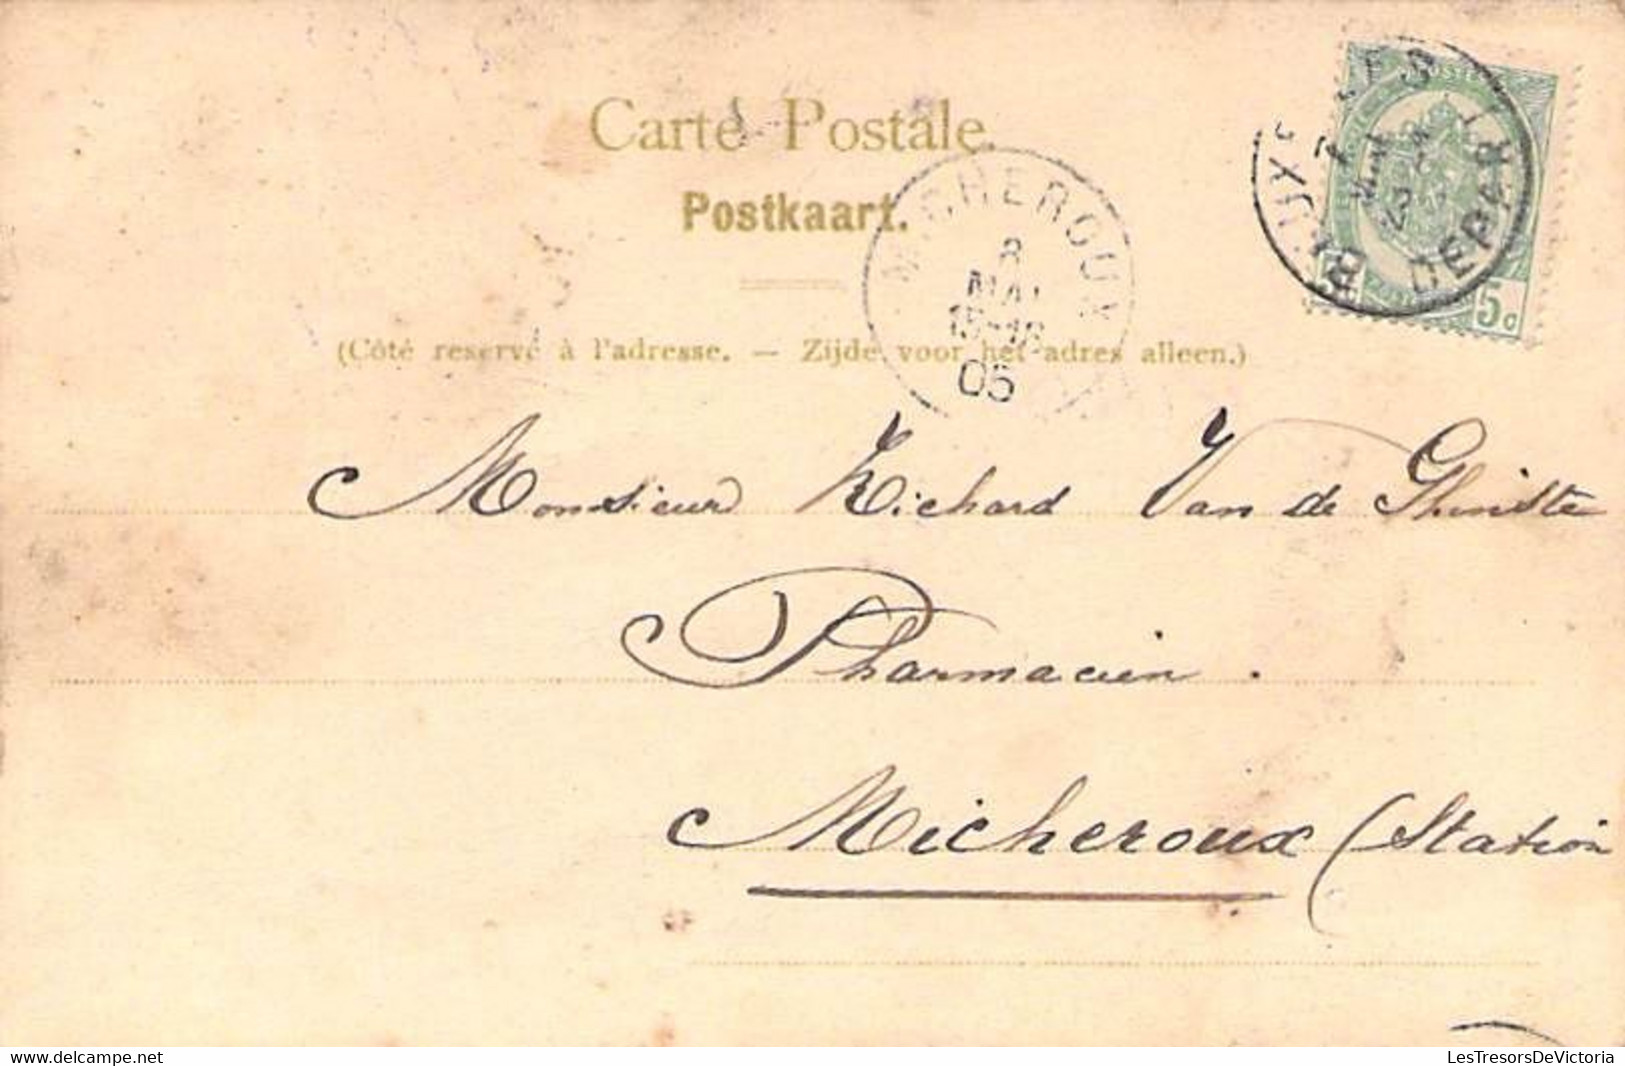 Carte Postale.
Postkaart.
(Côté reservé à l'adresse. — Zijde voor het adres alleen.)
MICHEROUX
8
MAI
15-16
05
DEPART
5c
Monsieur Richard Van de Ghinste
Pharmacien.
Micheroux (Station
delcampe.net
LesTresorsDeVictoria